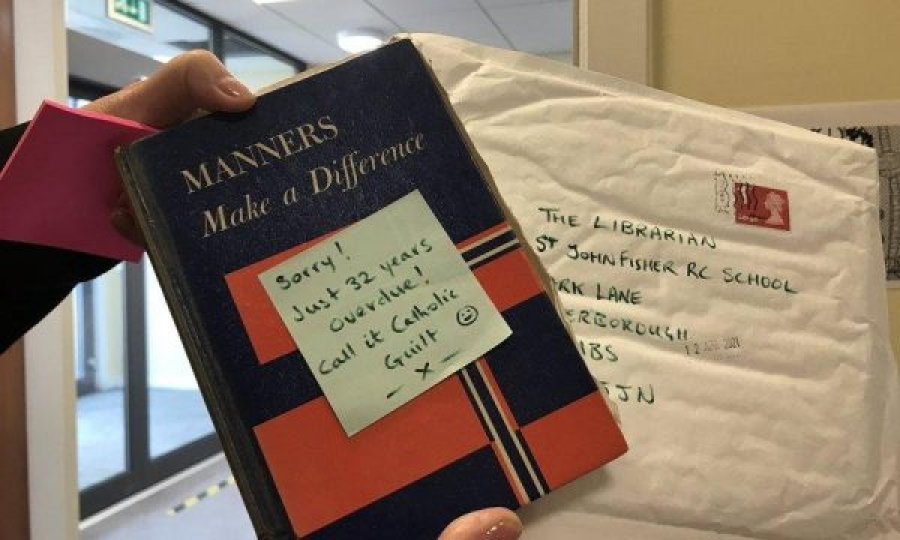 MANNERS
Make a Difference
Sorry!
Just 32 years
overdue!
Call it Catholic
Guilt
x
THE LIBRARIAN
ST JOHN FISHER RC SCHOOL
RK LANE
ERBOROUGH
IBS
JN